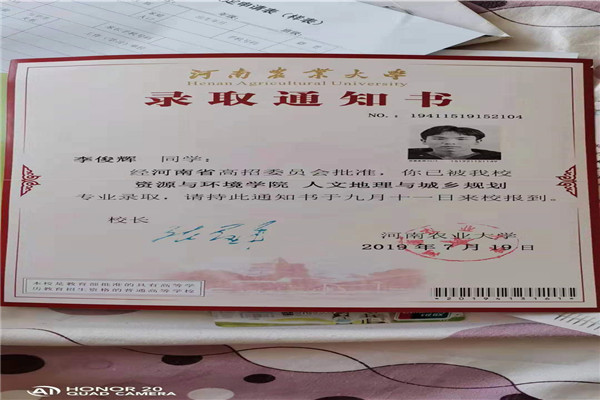 定申请表(样表)
河南农业大学
Henan Agricultural University
录取通知书
NO.: 19411519152104
李俊辉 同学:
经河南省高招委员会批准,你已被我校
资源与环境学院 人文地理与城乡规划
专业录取,请持此通知书于九月十一日来校报到。
校长
河南农业大学
2019年7月19日
本校是教育部批准的具有高等学
历教育招生资格的普通高等学校
HONOR 20
QUAD CAMERA
AI